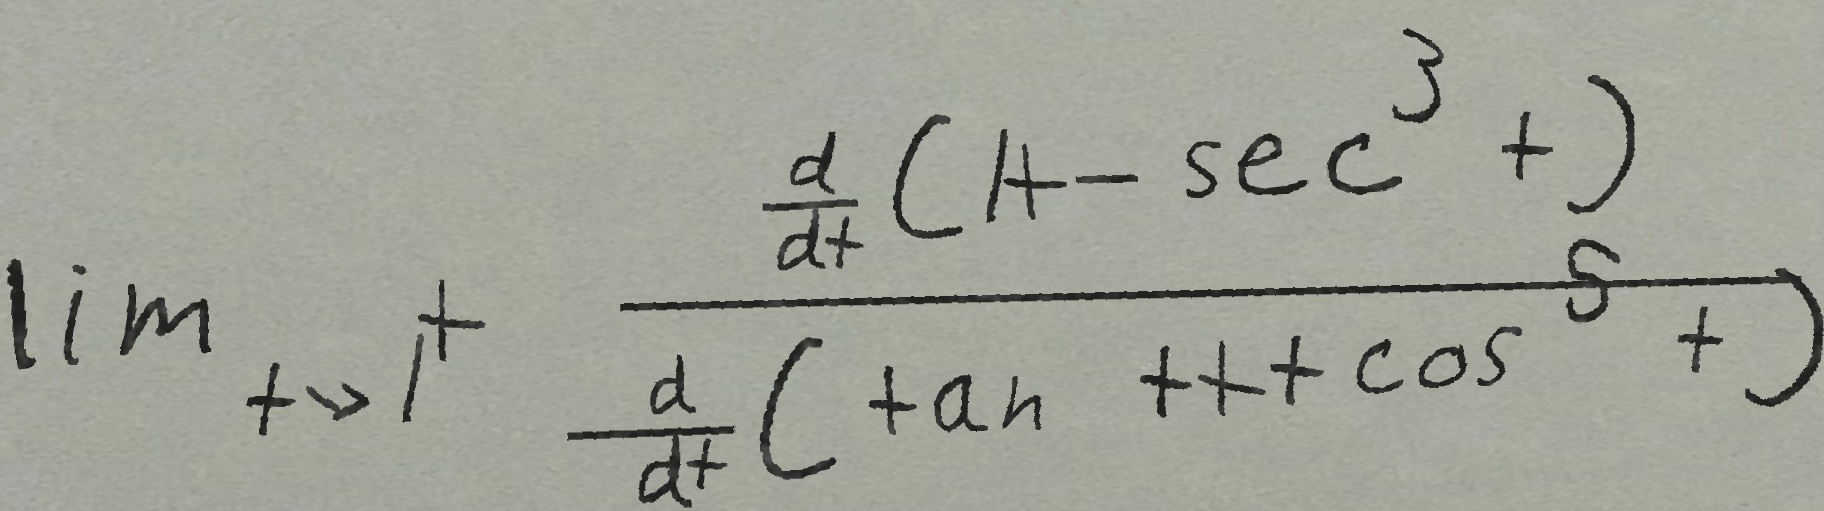 \lim_{t \to 1^+} \frac{\frac{d}{dt}(1t - \sec^3 t)}{\frac{d}{dt}(\tan t t + \cos^5 t)}